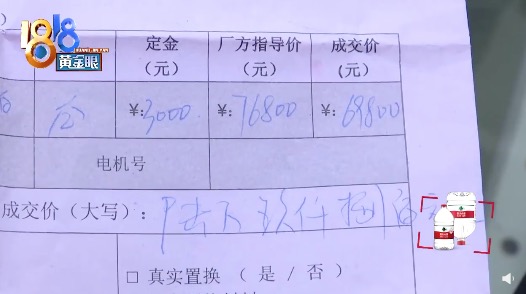 1818
黄金眼
定金 厂方指导价 成交价
（元） （元） （元）
¥: 3000 ¥: 76800 ¥: 69800
电机号
成交价（大写）： 陆万玖仟捌佰
□ 真实置换 （ 是 / 否 ）